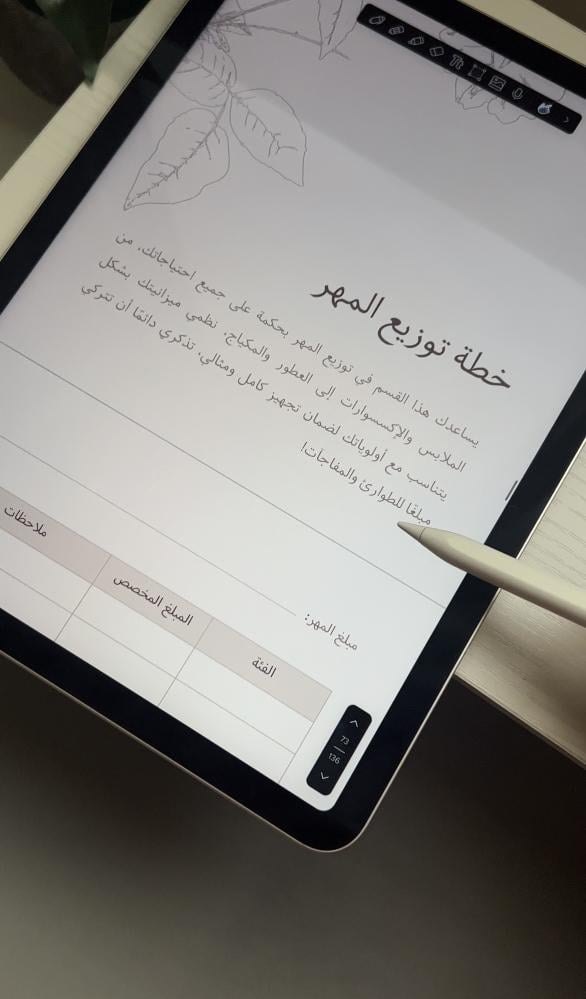 خطة توزيع المهر
يساعدك هذا القسم في توزيع المهر بحكمة على جميع احتياجاتك، من
الملابس والإكسسوارات إلى العطور والمكياج. نظمي ميزانيتك بشكل
يتناسب مع أولوياتك لضمان تجهيز كامل ومثالي. تذكري دائمًا أن تتركي
مبلغًا للطوارئ والمفاجآت!
مبلغ المهر:
الفئة
المبلغ المخصص
ملاحظات
73
136